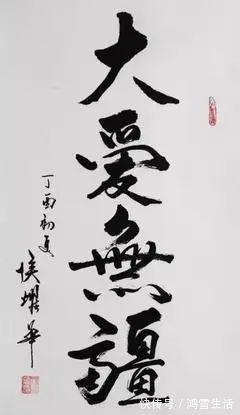 大爱無疆
丁酉初夏
侯耀華
快传号／鸿雪生活